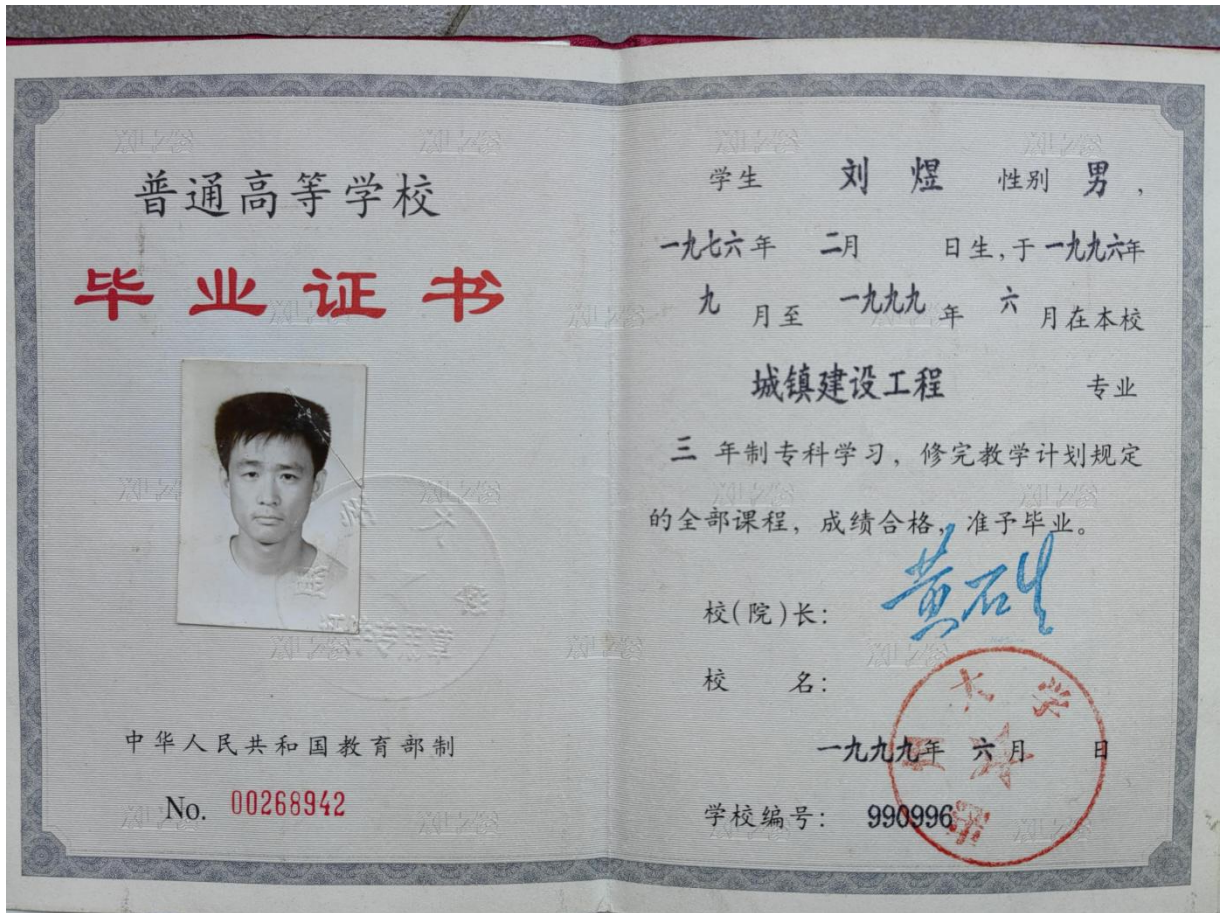 普通高等学校
毕业证书
中华人民共和国教育部制
No. 00268942
学生 刘煜 性别 男，
一九七六年 二月 日生，于一九九六年
九月至一九九九年六月在本校
城镇建设工程 专业
三年制专科学习，修完教学计划规定
的全部课程，成绩合格，准予毕业。
校(院)长：
校 名：
大学
一九九九年 六月 日
学校编号： 990996